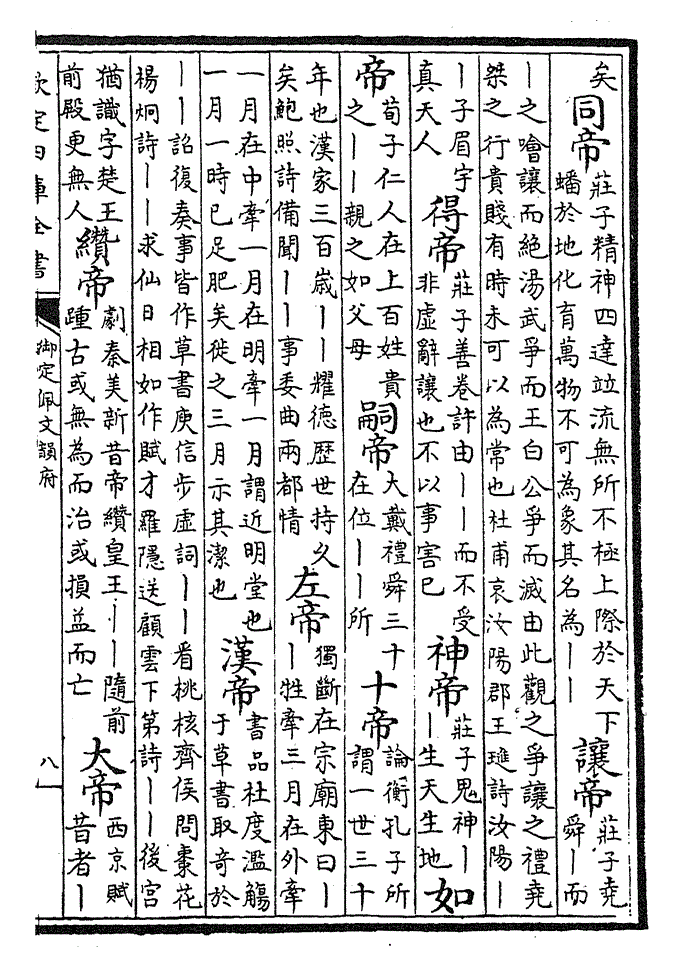 矣
同帝
莊子精神四達並流無所不極上際於天下
蟠於地化育萬物不可為象其名為丨丨
讓帝
莊子堯
舜丨而
丨之噲讓而絕湯武爭而王白公爭而滅由此觀之爭讓之禮堯
桀之行貴賤有時未可以為常也杜甫哀汝陽郡王璡詩汝陽丨
丨子眉宇
真天人
得帝
莊子善卷許由丨丨而不受
非虛辭讓也不以事害己
神帝
莊子鬼神丨
丨生天生地
如
帝
荀子仁人在上百姓貴
之丨丨親之如父母
嗣帝
大戴禮舜三十
在位丨丨所
十帝
論衡孔子所
謂一世三十
年也漢家三百嵗丨丨耀德歷世持久
矣鮑照詩備聞丨丨事委曲兩都情
左帝
獨斷在宗廟東曰丨
丨牲牽三月在外牽
一月在中牽一月在明牽一月謂近明堂也
一月一時已足肥矣徙之三月示其潔也
漢帝
書品杜度濫觴
于草書取奇於
丨丨詔復奏事皆作草書庾信步虛詞丨丨看桃核齊侯問棗花
楊炯詩丨丨求仙日相如作賦才羅隱送顧雲下第詩丨丨後宮
猶識字楚王
前殿更無人
纘帝
劇秦美新昔帝纘皇王丨丨隨前
踵古或無為而治或損益而亡
大帝
西京賦
昔者丨
欽定四庫全書
御定佩文韻府
八